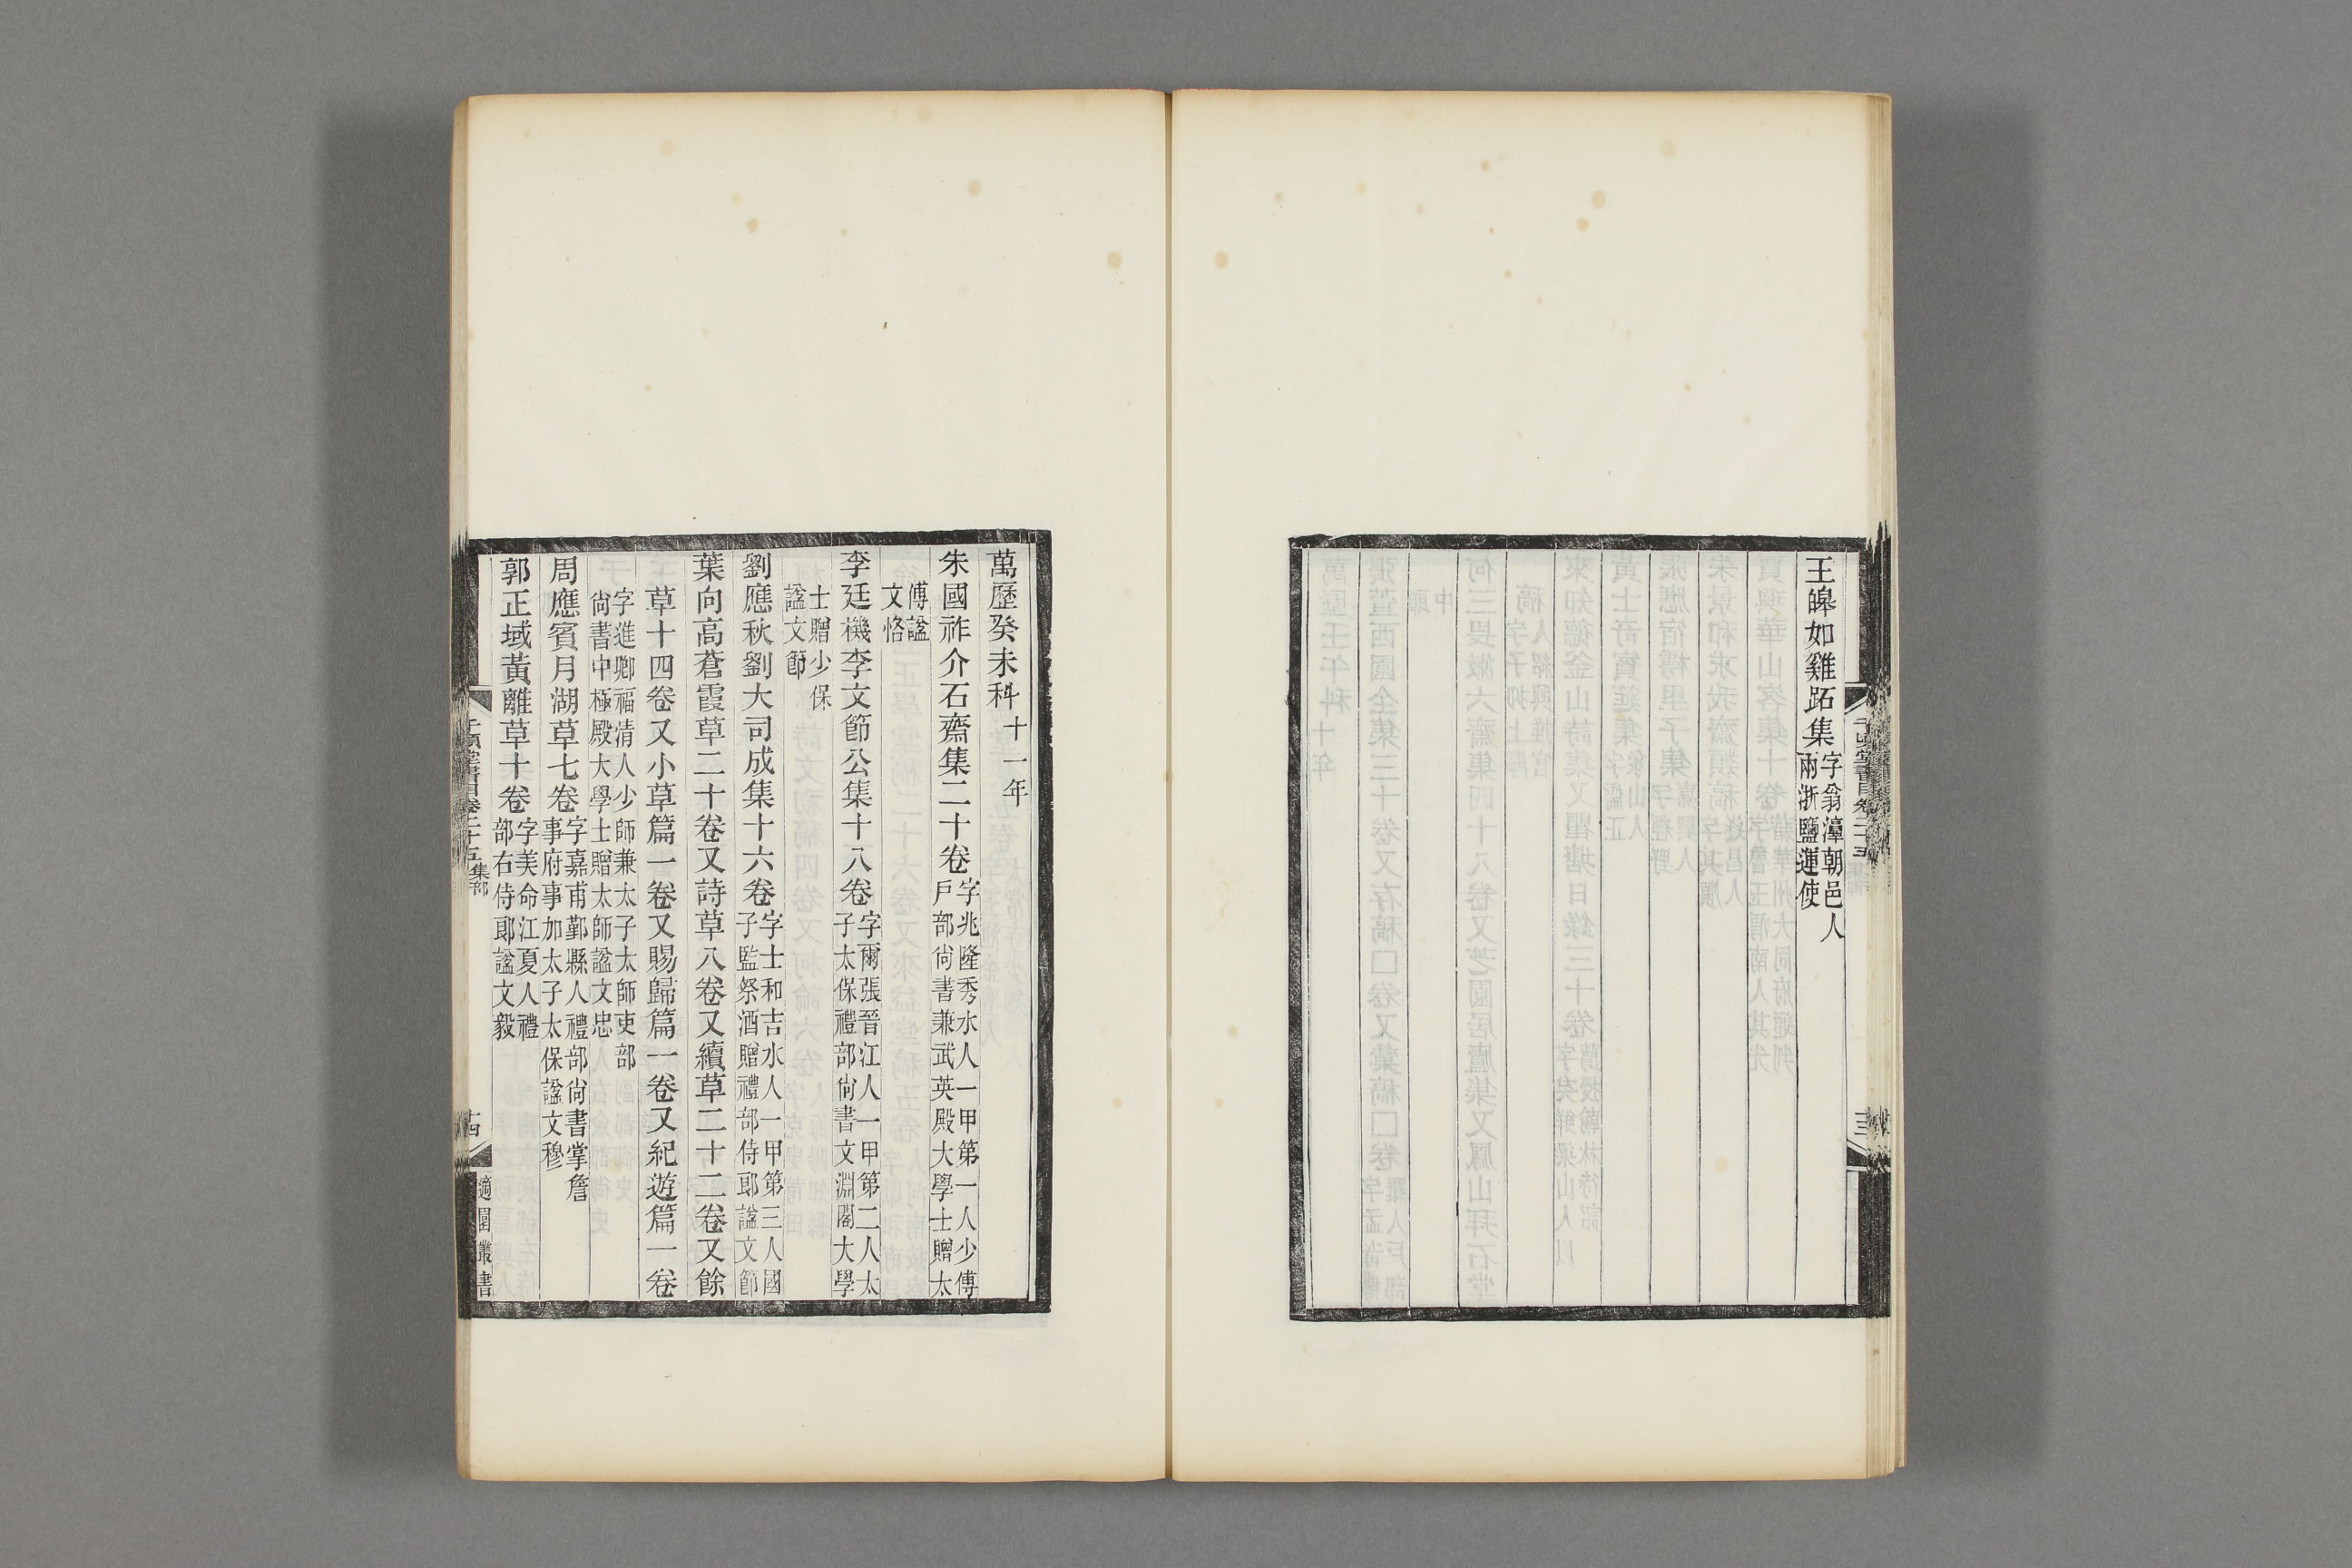 王皞如雞跖集字翁漳朝邑人
兩浙鹽運使
萬歷癸未科十一年
朱國祚介石齋集二十卷字兆隆秀水人一甲第一人少傅
戶部尚書兼武英殿大學士贈太
傅諡
文恪
李廷機李文節公集十八卷字爾張晉江人一甲第二人太
子太保禮部尚書文淵閣大學
士贈少保
諡文節
劉應秋劉大司成集十六卷字士和吉水人一甲第三人國
子監祭酒贈禮部侍郎諡文節
葉向高蒼霞草二十卷又詩草八卷又續草二十二卷又餘
草十四卷又小草篇一卷又賜歸篇一卷又紀遊篇一卷
字進卿福清人少師兼太子太師吏部
尚書中極殿大學士贈太師諡文忠
周應賓月湖草七卷字嘉甫鄞縣人禮部尚書掌詹
事府事加太子太保諡文穆
郭正域黃離草十卷字美命江夏人禮
部右侍郎諡文毅
千頃堂書目卷二十五集部
十四
適園叢書